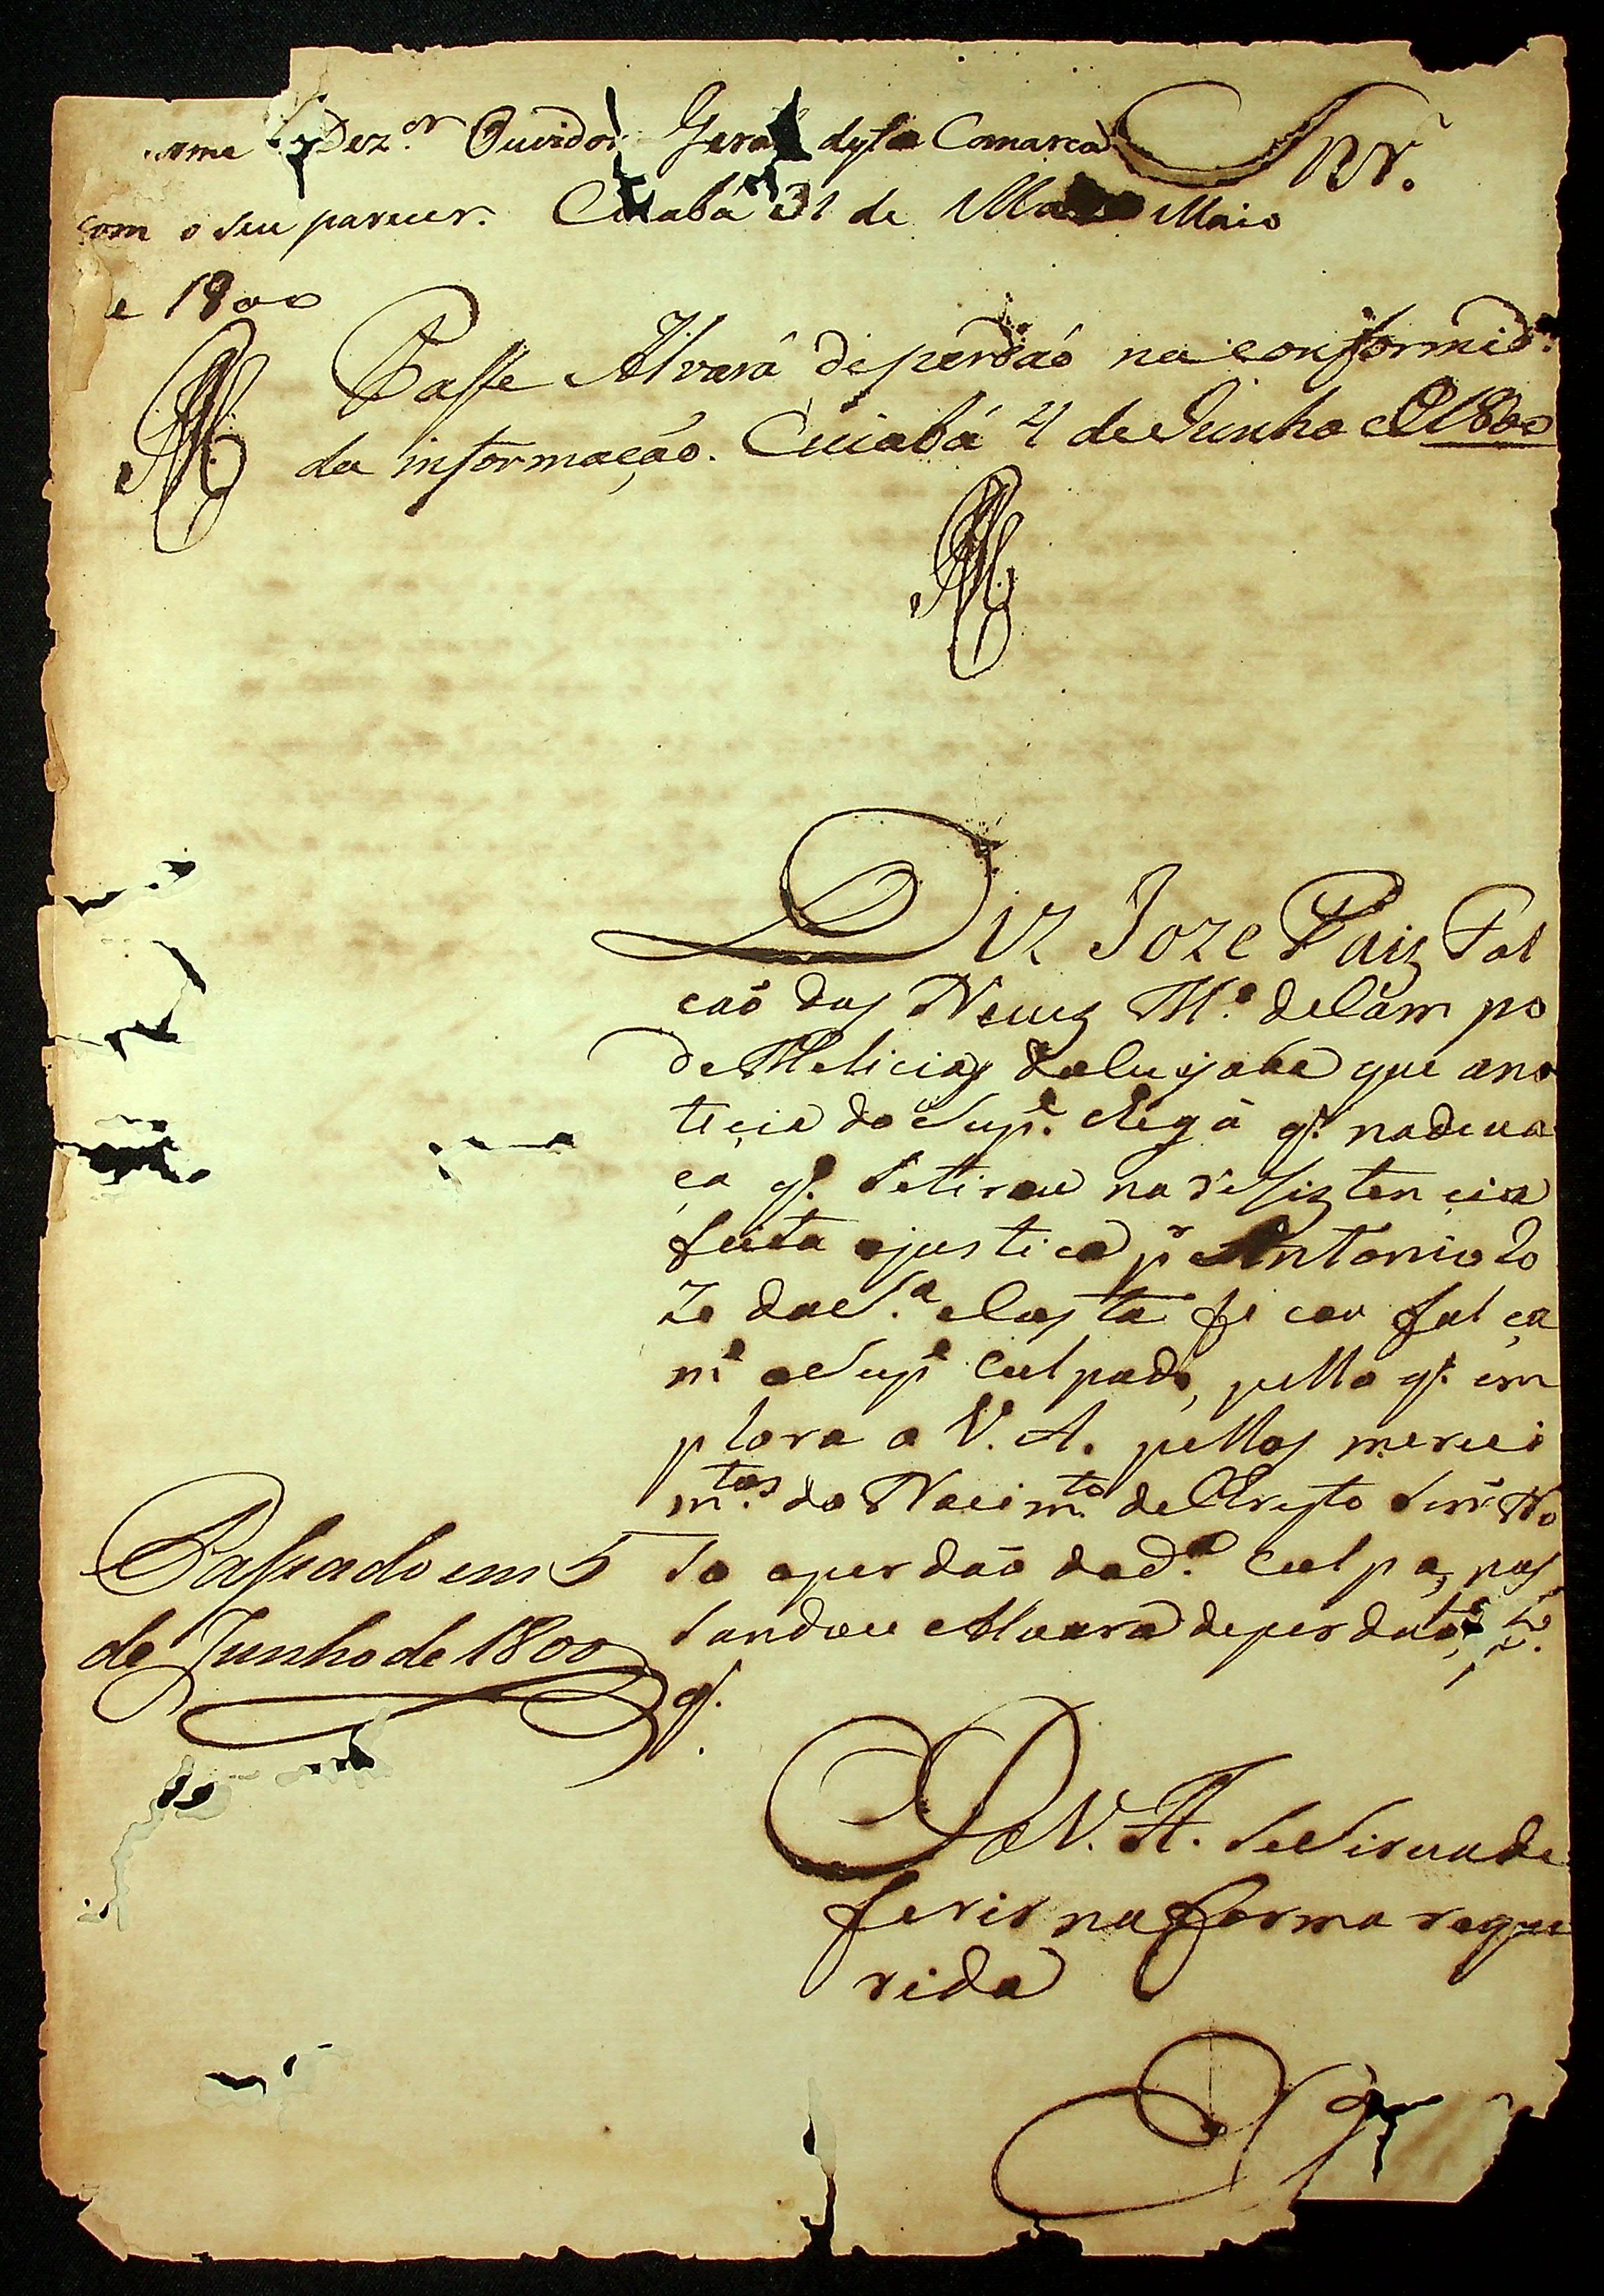 Dez.or Ouvidor Geral desta Comarca Snr.
com o seu parecer. Cuiabá 31 de Maio
e 1800
Passe Alvará de perdaó na conformid.e
da informação. Cuiabá 4 de Junho de 1800
Diz Joze Paiz Fal
caó das Neves M.e de Cam po
de Melicias do Cuyaba que ano
ticia do Sup.e chega q.' na deva
ça q.' se tirou na resistencia
feita ajustica p.r Antonio Jo
ze da S.a Costa fi cou fal ça
m.e o Sup.e Culpado, pello q.' im
plora a V. A. pellos mereci
m.tos do Nacim.to de Christo Senr No
so o perdaó da d.a Culpa, pas
sandose Alvara de perdaó,
q.'
P. a V. A. se Sirva de
ferir na forma reque
rida
Passado em 5
de Junho de 1800